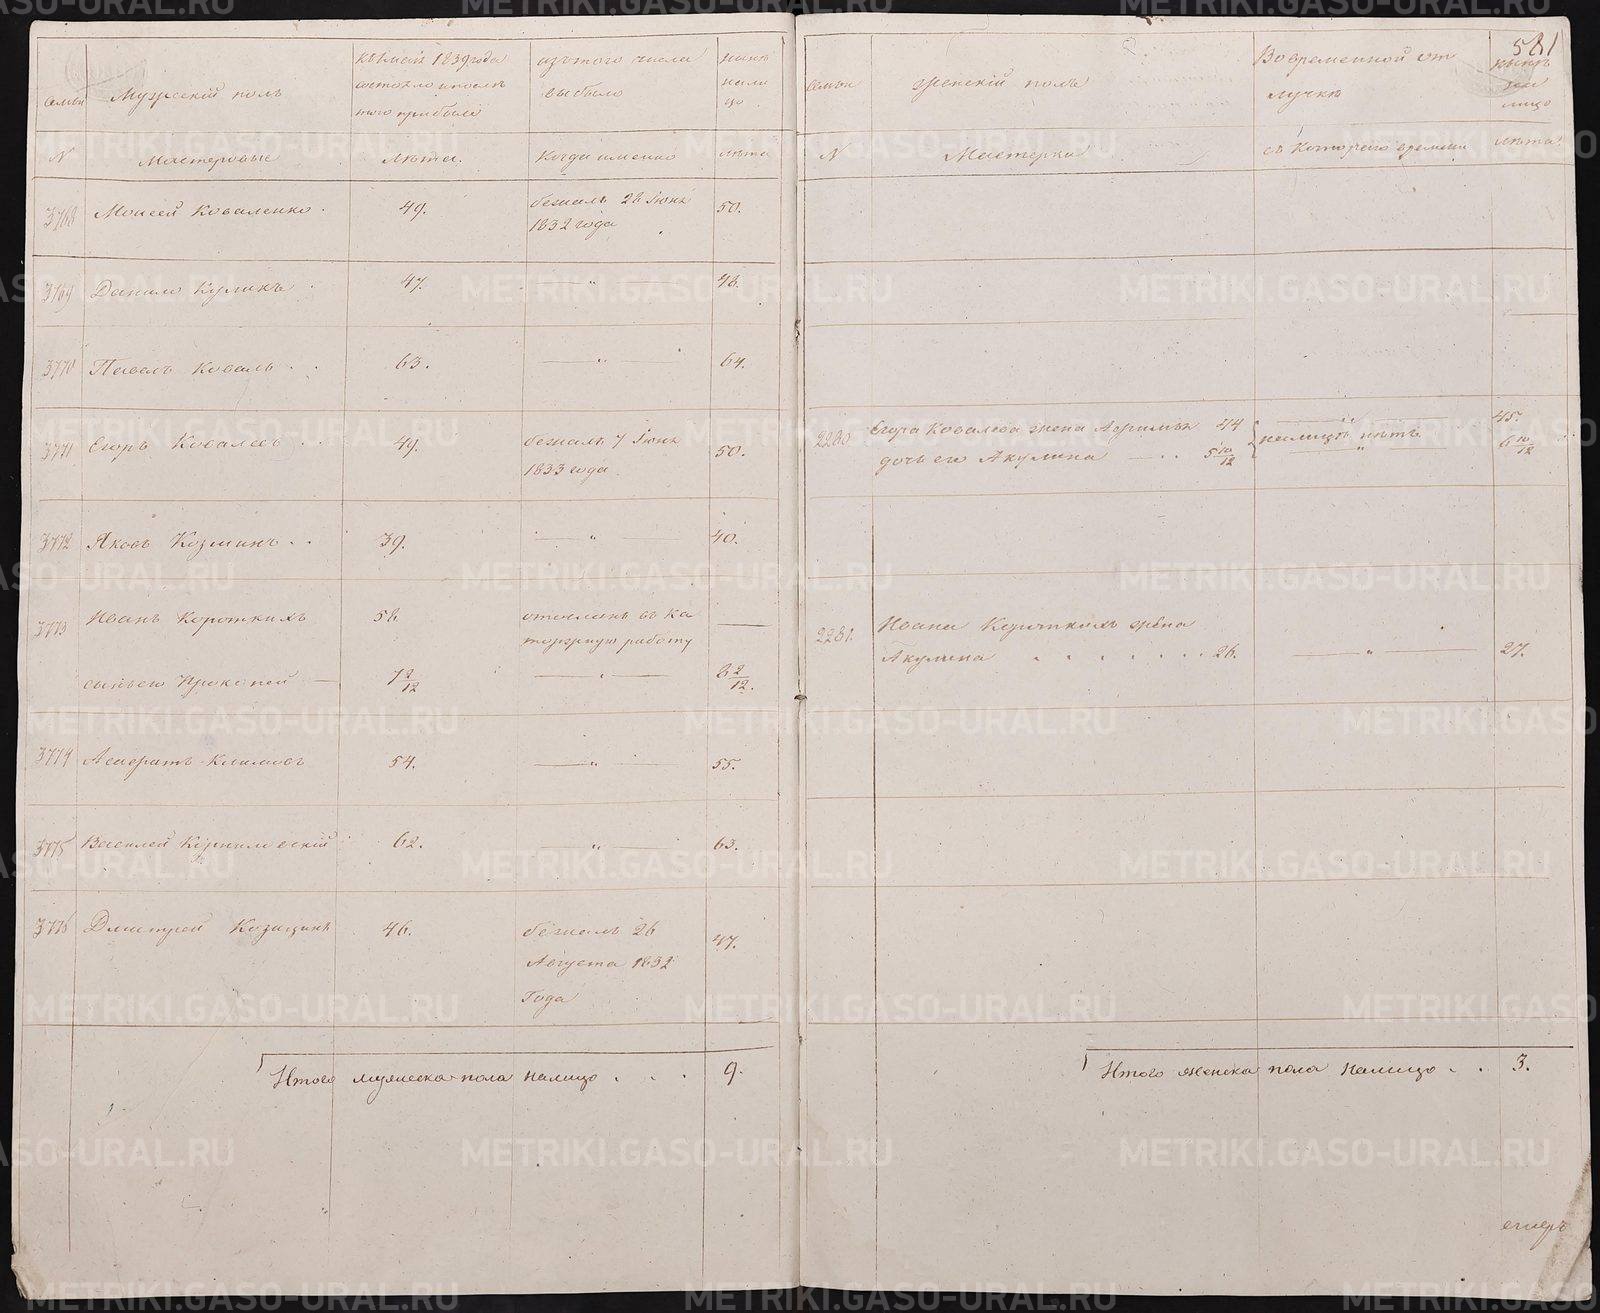 581
семьи
Мужескiй полъ
къ мая 1839 года
состояло и после
того прибыло
изъ того числа
выбыло
ныне
нали
цо
N
Мастеровые
лѣта.
когда именно
лѣта
3768
Моисей Коваленко.
49.
бежалъ 28 Iюня
1832 года
50.
3769
Данило Куликъ
47.
— " —
48.
3770
Павелъ Коваль . .
63.
— " —
64.
3771
Егоръ Ковалевъ . .
49.
бежалъ 7 Iюня
1833 года.
50.
3772
Яковъ Козминъ . .
39.
"
40.
3773
Иванъ Короткихъ
58.
отосланъ въ ка
торжную работу
—
сынъ его Прокопей —
7 2/12
— " —
8 2/12.
3774
54.
— " —
55.
3775
Василей
62.
— " —
63.
3776
Дмитрей Козицинъ
46.
бежалъ 26
Августа 1832
Года
47.
Итого мужеска пола налицо . . .
9.
семьи
женскiй полъ
Во временной от
лучке
ныне
на
лицо
N
Мастерки
съ Котораго времени
лѣта.
2280
Егора Ковалева жена 44
— " —
45.
дочь его Акулина — . . 5 10/12
налицо нѣтъ
— " —
6 10/12
2281.
Ивана Короткихъ жена
Акулина . . . . . . . 26.
— " —
27.
Итого женска пола налицо . .
3.